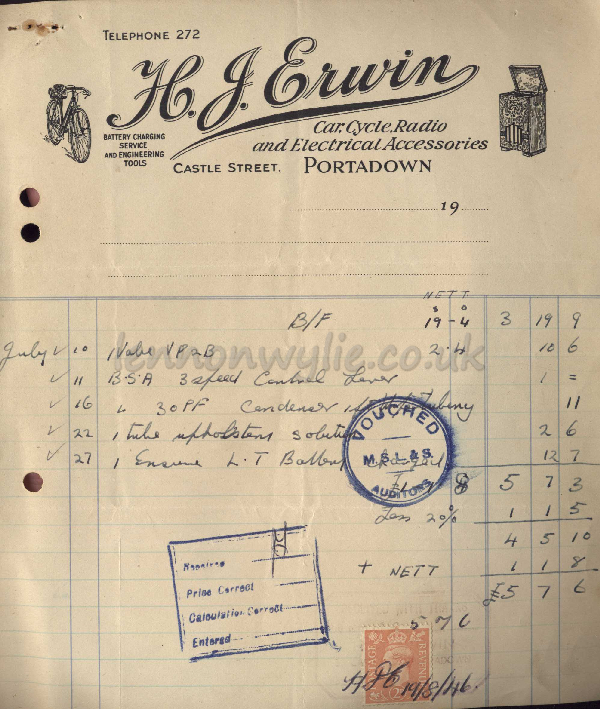 TELEPHONE 272
H. J. Erwin
Car, Cycle, Radio
and Electrical Accessories
BATTERY CHARGING
SERVICE
AND ENGINEERING
TOOLS
CASTLE STREET, PORTADOWN
19
NETT
s D
B/F 19-4 3 19 9
July 10 1 Valve VP2B 2.4 10 6
11 BSA 3 speed Control Lever 1 =
16 " 30 PF Condenser Tubing 11
22 1 tube upholsters solution 2 6
27 1 Ensure L.T Battery 12 7
5 7 3
Less 20% 1 1 5
4 5 10
+ NETT 1 1 8
£5 7 6
5 7 6
VOUCHED
M.S.L.&S.
AUDITORS
Received
Price Correct
Calculation Correct
Entered
POSTAGE REVENUE
19/8/46.
lennonwylie.co.uk